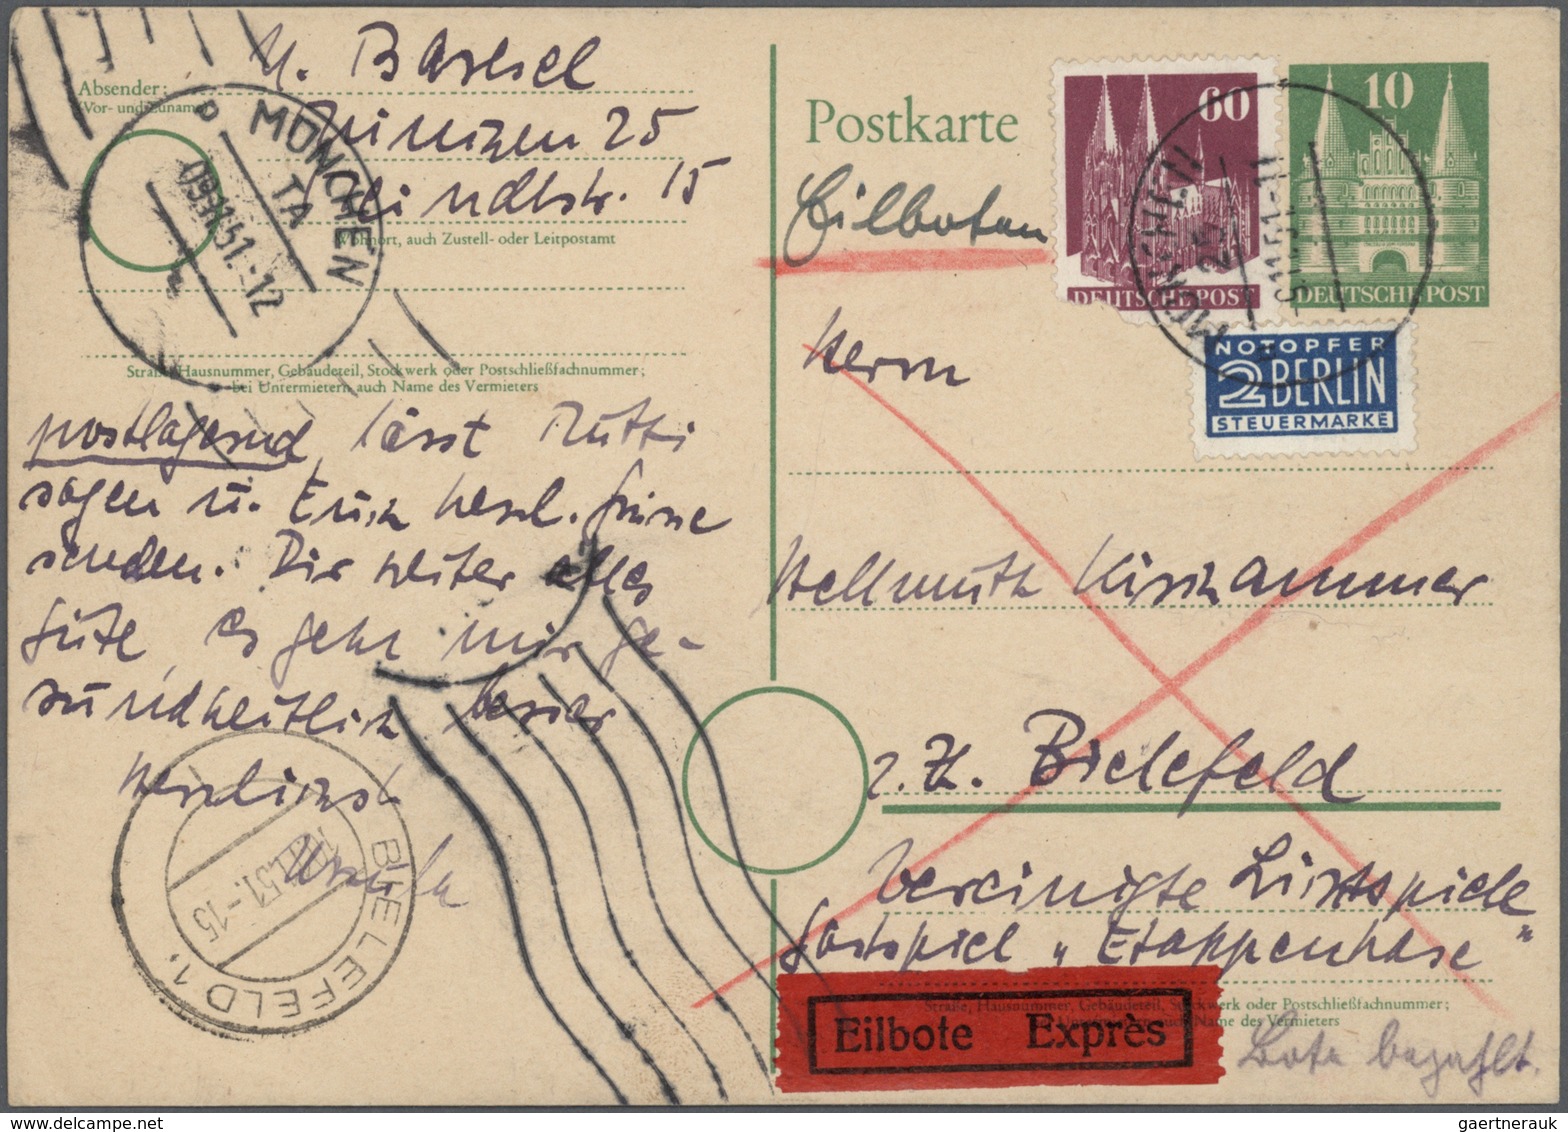 U. Baresel
München 25
Lindtstr. 15
Absender:
(Vor- und Zuname)
Wohnort, auch Zustell- oder Leitpostamt
Straße, Hausnummer, Gebäudeteil, Stockwerk oder Postschließfachnummer;
bei Untermietern auch Name des Vermieters
MÜNCHEN
TA
09.XI.51.-12
postlagernd lässt Mutti
sagen u. Euch herzl. Grüsse
senden. Dir weiter alles
Gute, es geht mir ge-
sundheitlich besser
Herzlichst
Ursula
BIELEFELD 1
51.-15
Postkarte
Eilboten
60
DEUTSCHE POST
10
DEUTSCHE POST
MÜNCHEN
25
NOTOPFER
2 BERLIN
STEUERMARKE
Herrn
Hellmuth Kirchammer
z. Zt. Bielefeld
Vereinigte Lichtspiele
Gastspiel „Etappenhase"
Straße, Hausnummer, Gebäudeteil, Stockwerk oder Postschließfachnummer;
auch Name des Vermieters
Eilbote Exprès
Bote bezahlt.
gaertnerauk